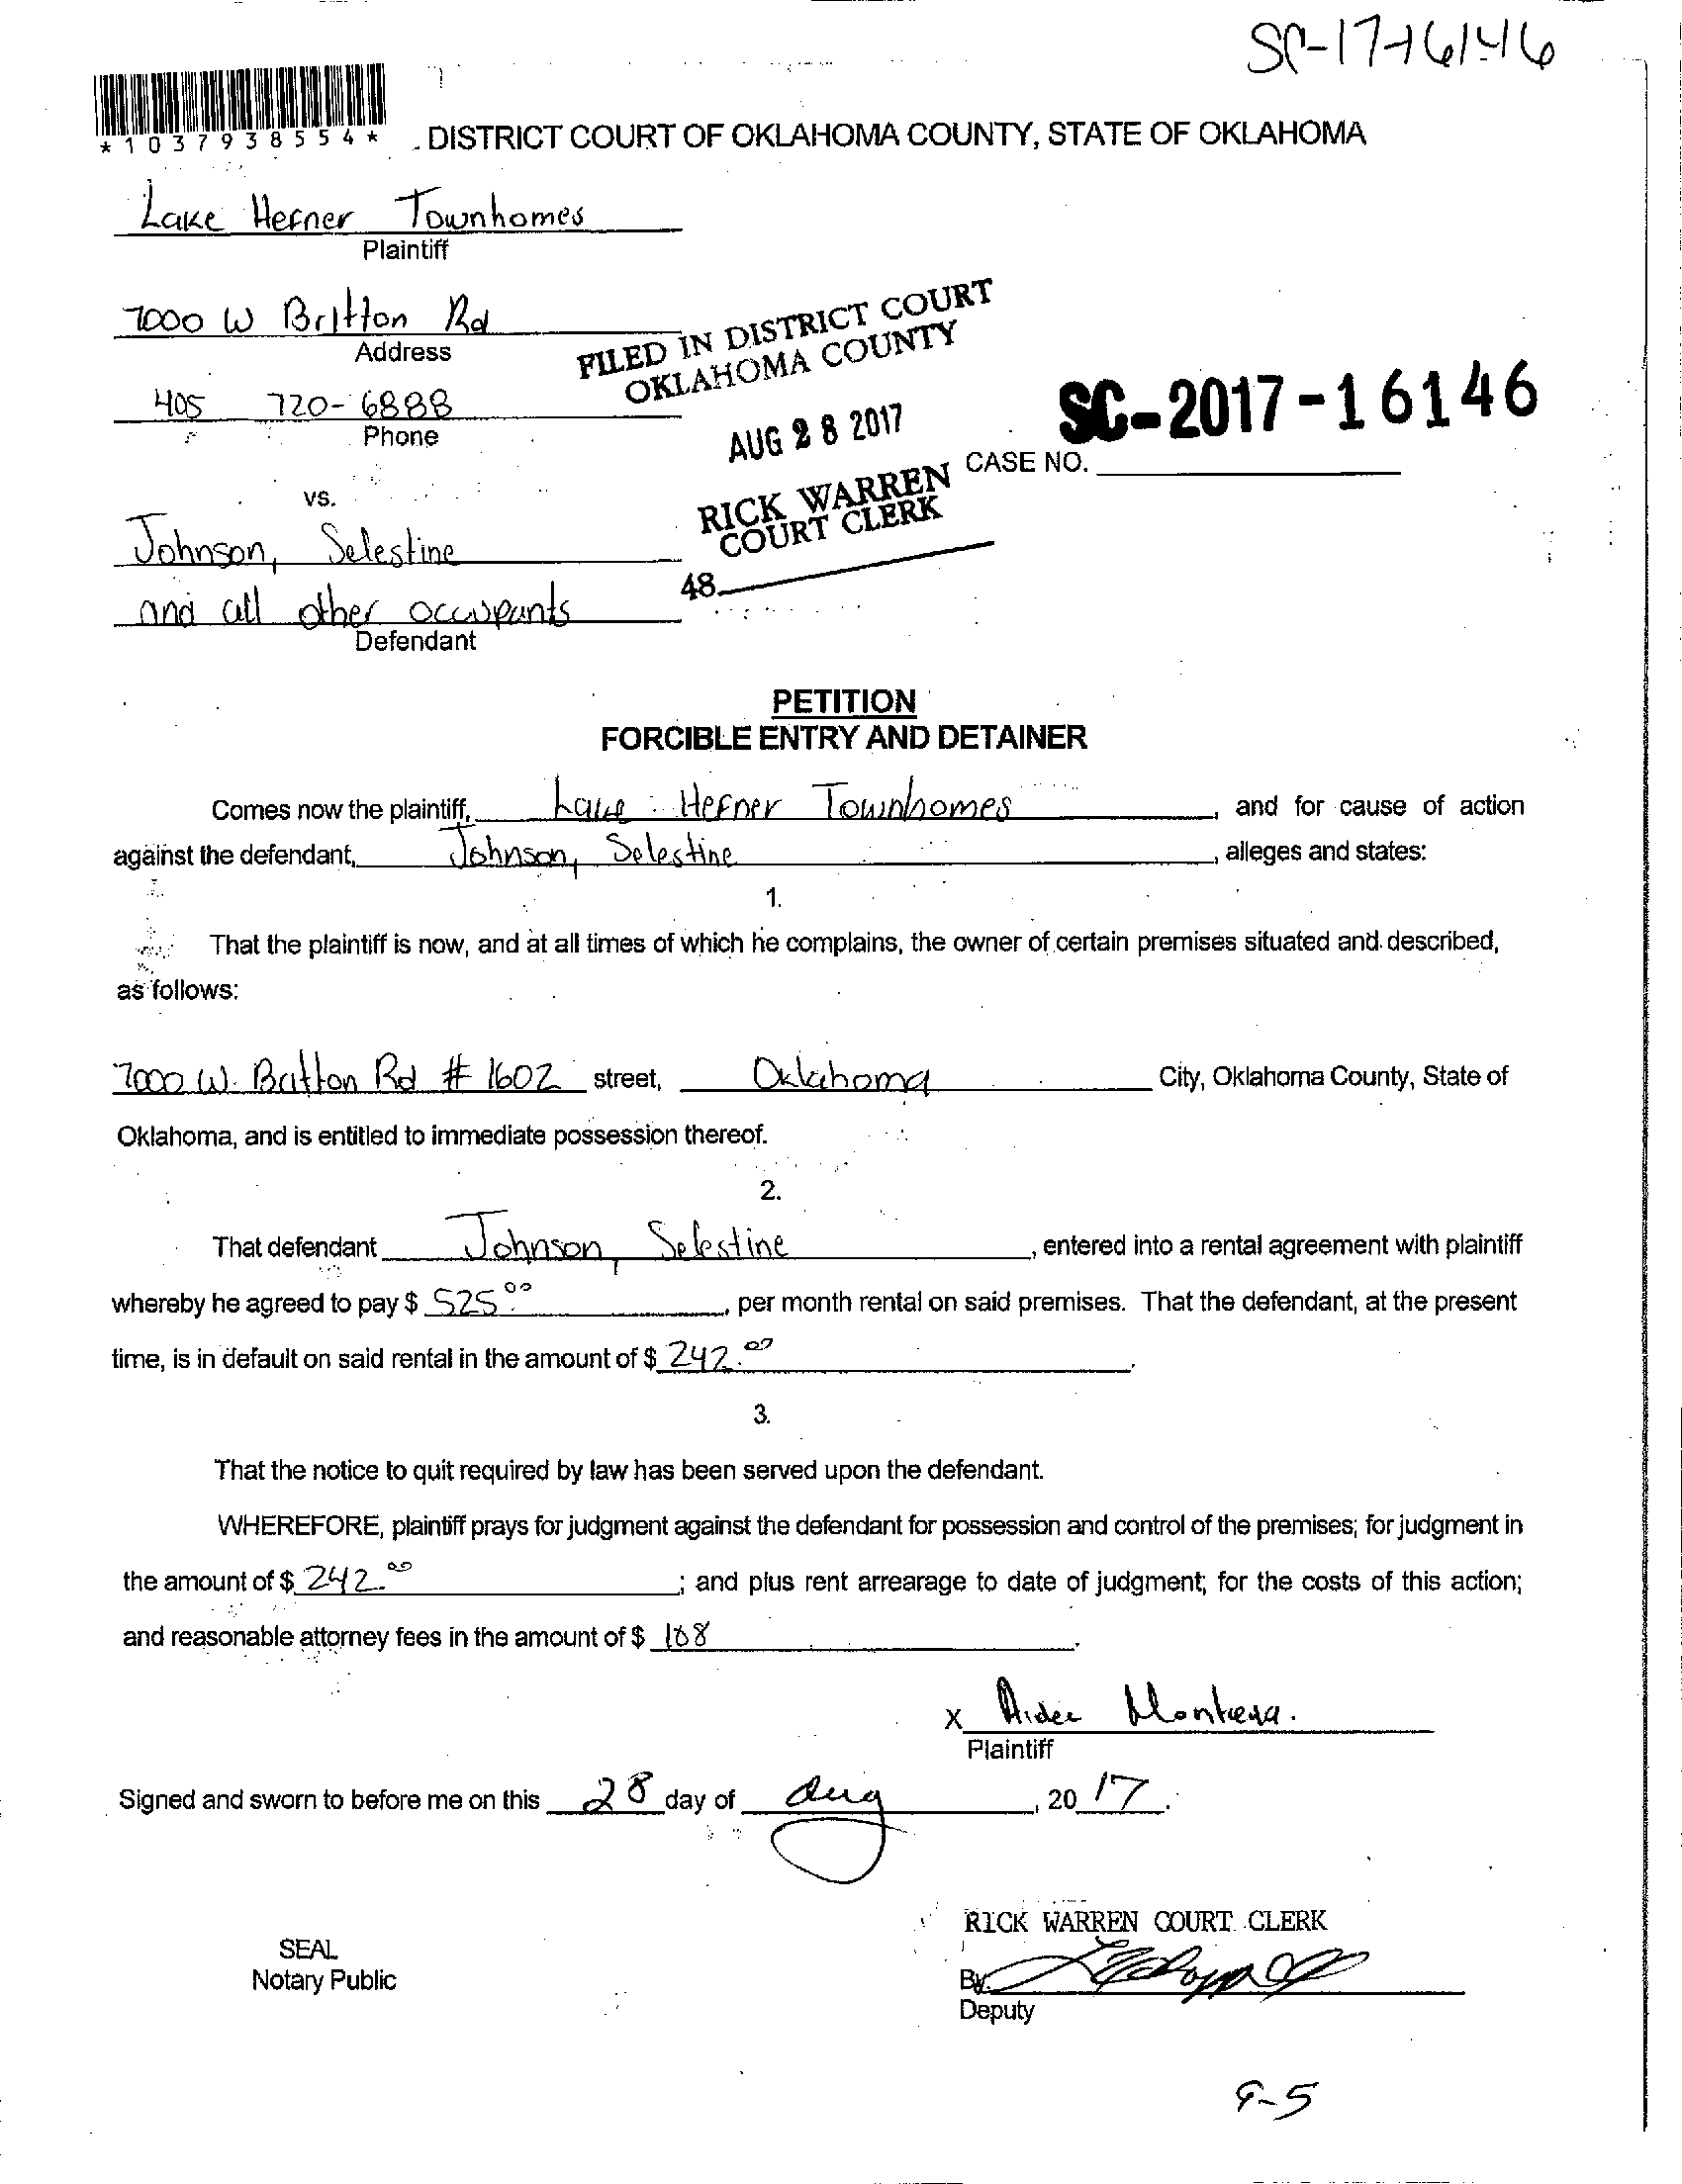 SC-17-16146
*1037938554*
DISTRICT COURT OF OKLAHOMA COUNTY, STATE OF OKLAHOMA
Lake Hefner Townhomes
Plaintiff
7000 W Britton Rd
Address
405 720-6888
Phone
FILED IN DISTRICT COURT
OKLAHOMA COUNTY
AUG 28 2017
RICK WARREN
COURT CLERK
48
SC-2017-16146
CASE NO.
vs.
Johnson, Selestine
and all other occupants
Defendant
PETITION
FORCIBLE ENTRY AND DETAINER
Comes now the plaintiff, Lake Hefner Townhomes, and for cause of action
against the defendant, Johnson, Selestine, alleges and states:
1.
That the plaintiff is now, and at all times of which he complains, the owner of certain premises situated and described,
as follows:
7000 W. Britton Rd # 1602 street, Oklahoma City, Oklahoma County, State of
Oklahoma, and is entitled to immediate possession thereof.
2.
That defendant Johnson, Selestine, entered into a rental agreement with plaintiff
whereby he agreed to pay $ 525.00, per month rental on said premises. That the defendant, at the present
time, is in default on said rental in the amount of $ 242.00.
3.
That the notice to quit required by law has been served upon the defendant.
WHEREFORE, plaintiff prays for judgment against the defendant for possession and control of the premises; for judgment in
the amount of $ 242.00; and plus rent arrearage to date of judgment; for the costs of this action;
and reasonable attorney fees in the amount of $ 108.
X Aidee
Plaintiff
Signed and sworn to before me on this 28 day of Aug, 20 17.
RICK WARREN COURT CLERK
SEAL
Notary Public
By
Deputy
9-5